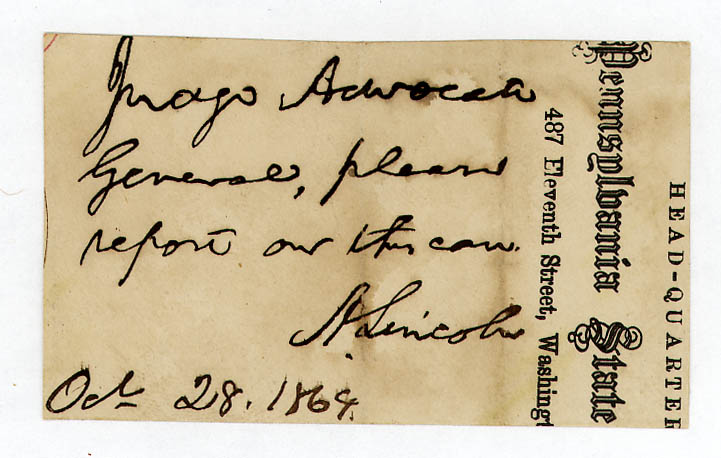 Judge Advocate
General, please
report on this case.
A. Lincoln
Oct. 28. 1864.
HEAD-QUARTER
Pennsylvania State
487 Eleventh Street, Washingt